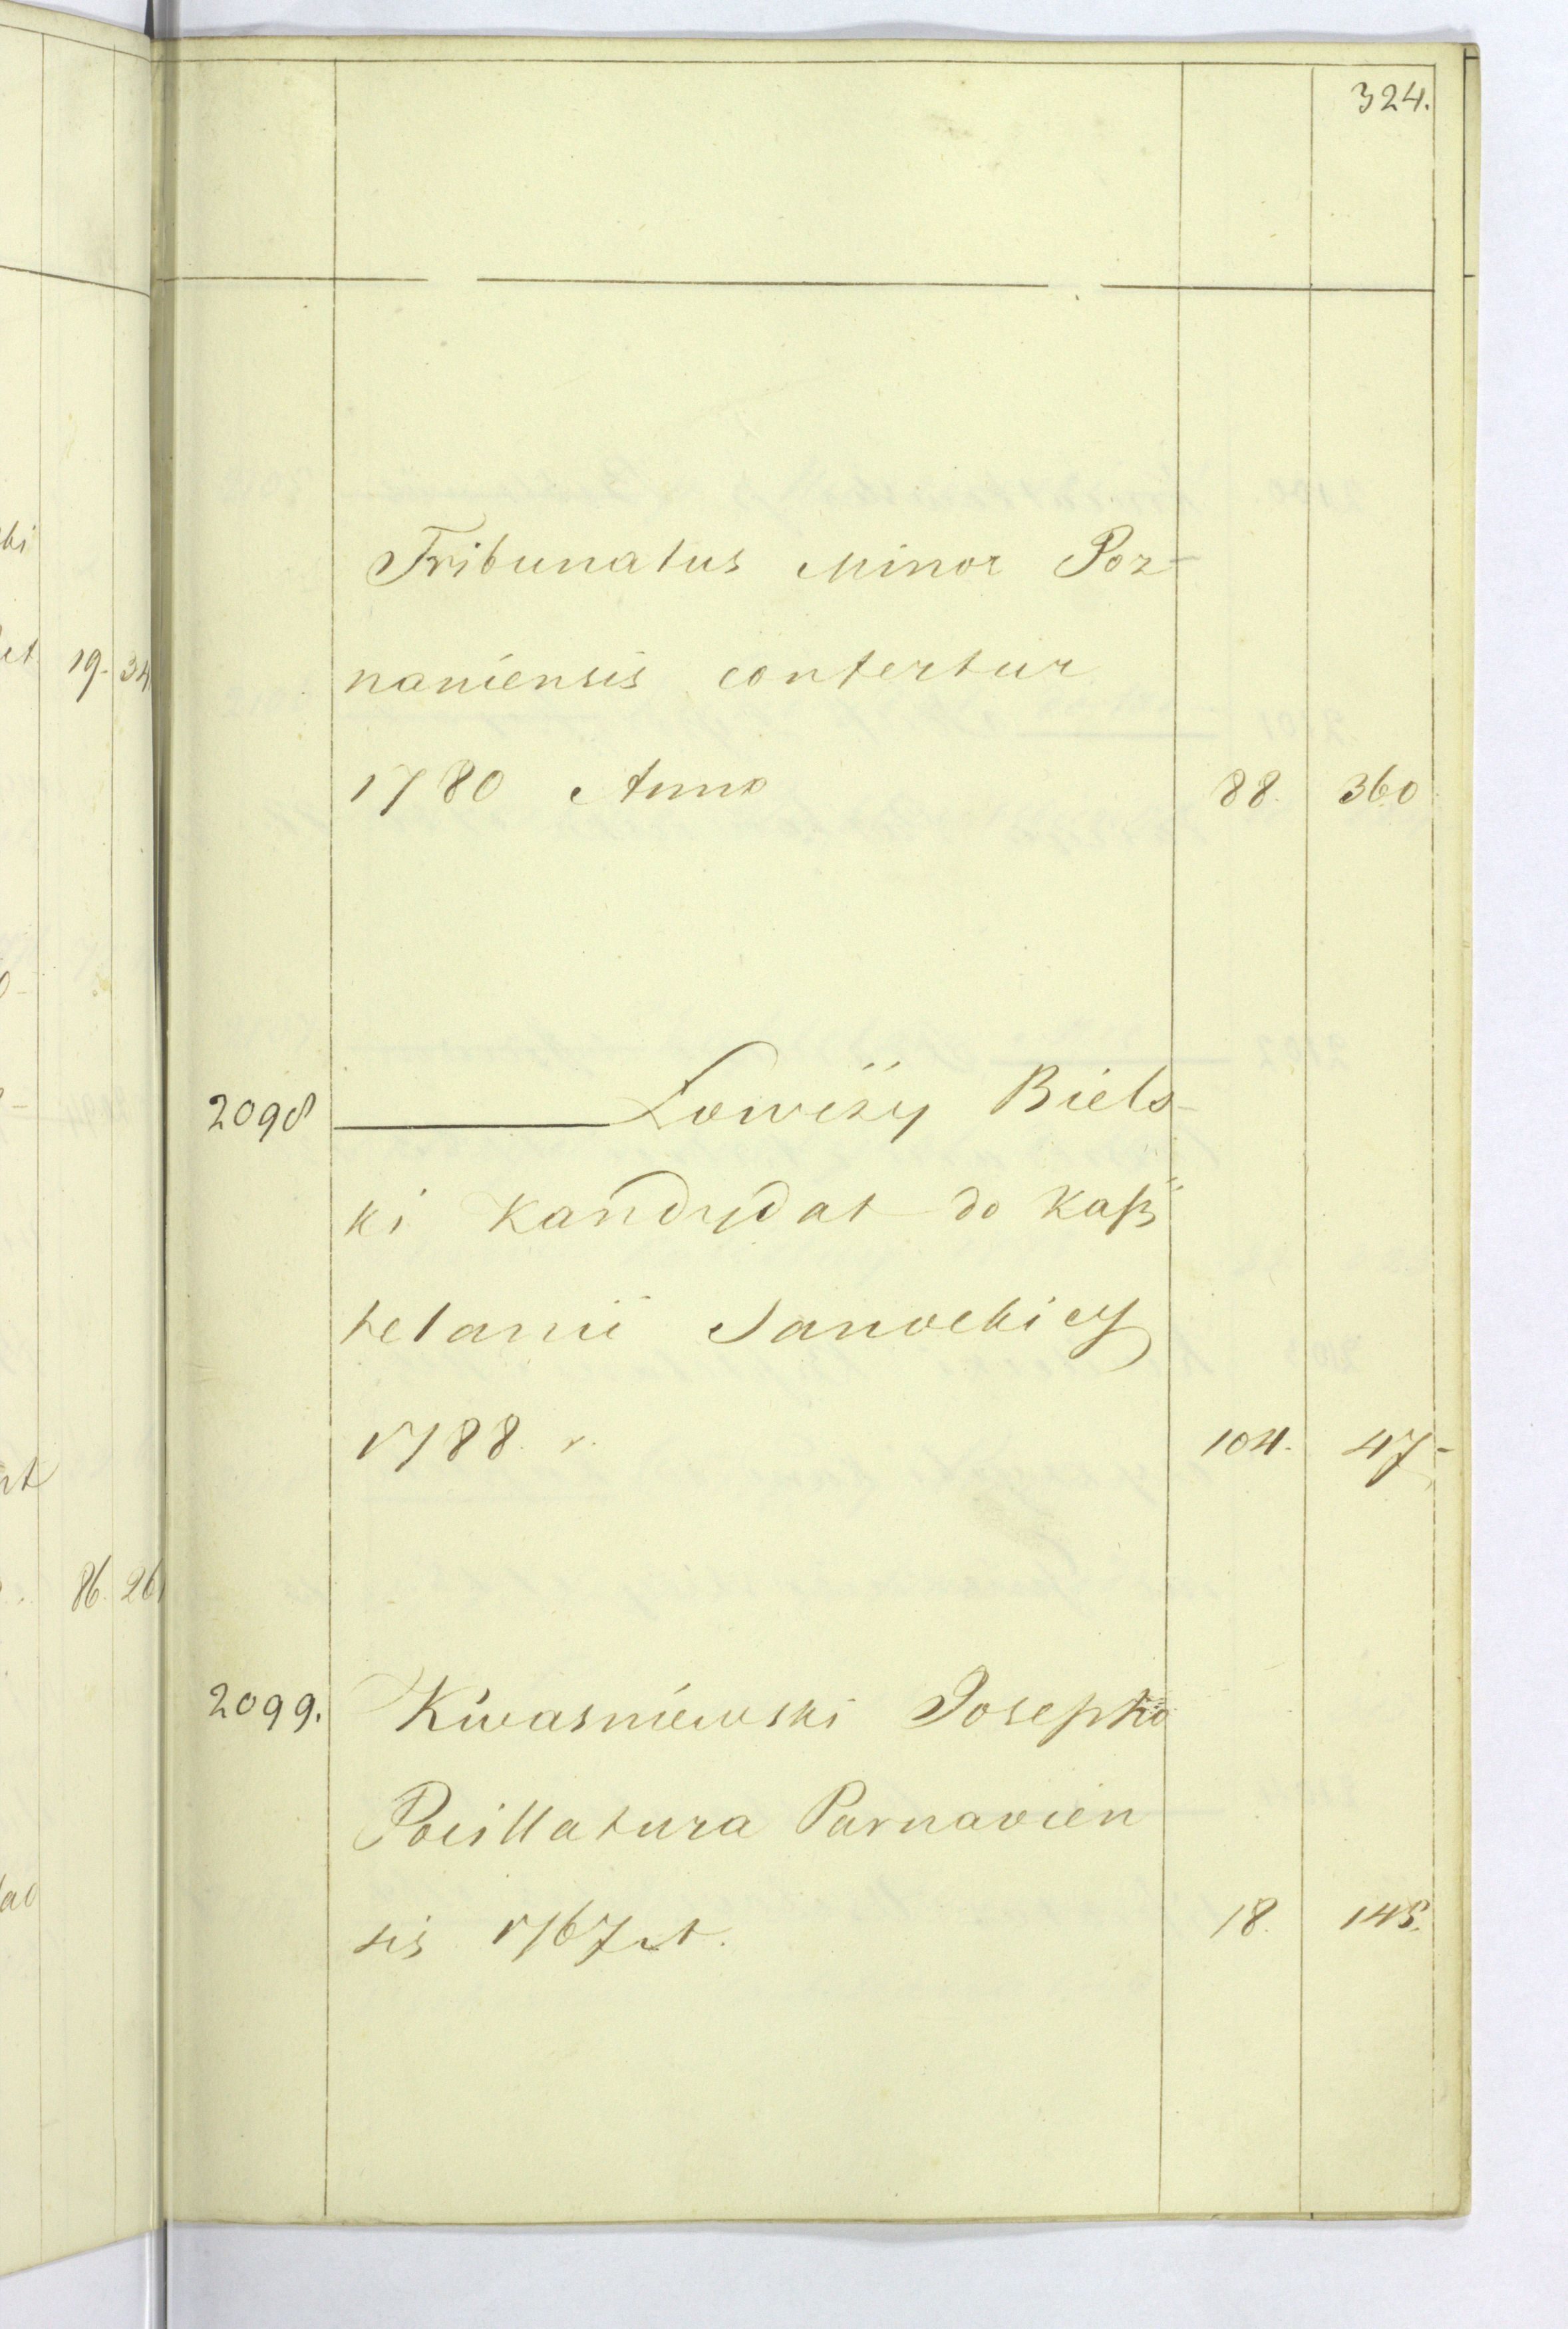 324.
Tribunatus Minor Poz-
naniensis confertur
1780 Anno 88. 360
2098 Lowczy Biels-
ki Kandydat do Kaß
telanii Sanockiey
1788. r. 104. 47-
2099. Kwasniewski Josepho
Pocillatura Parnavien
sis 1767 A. 18. 145.
19. 34
86. 261